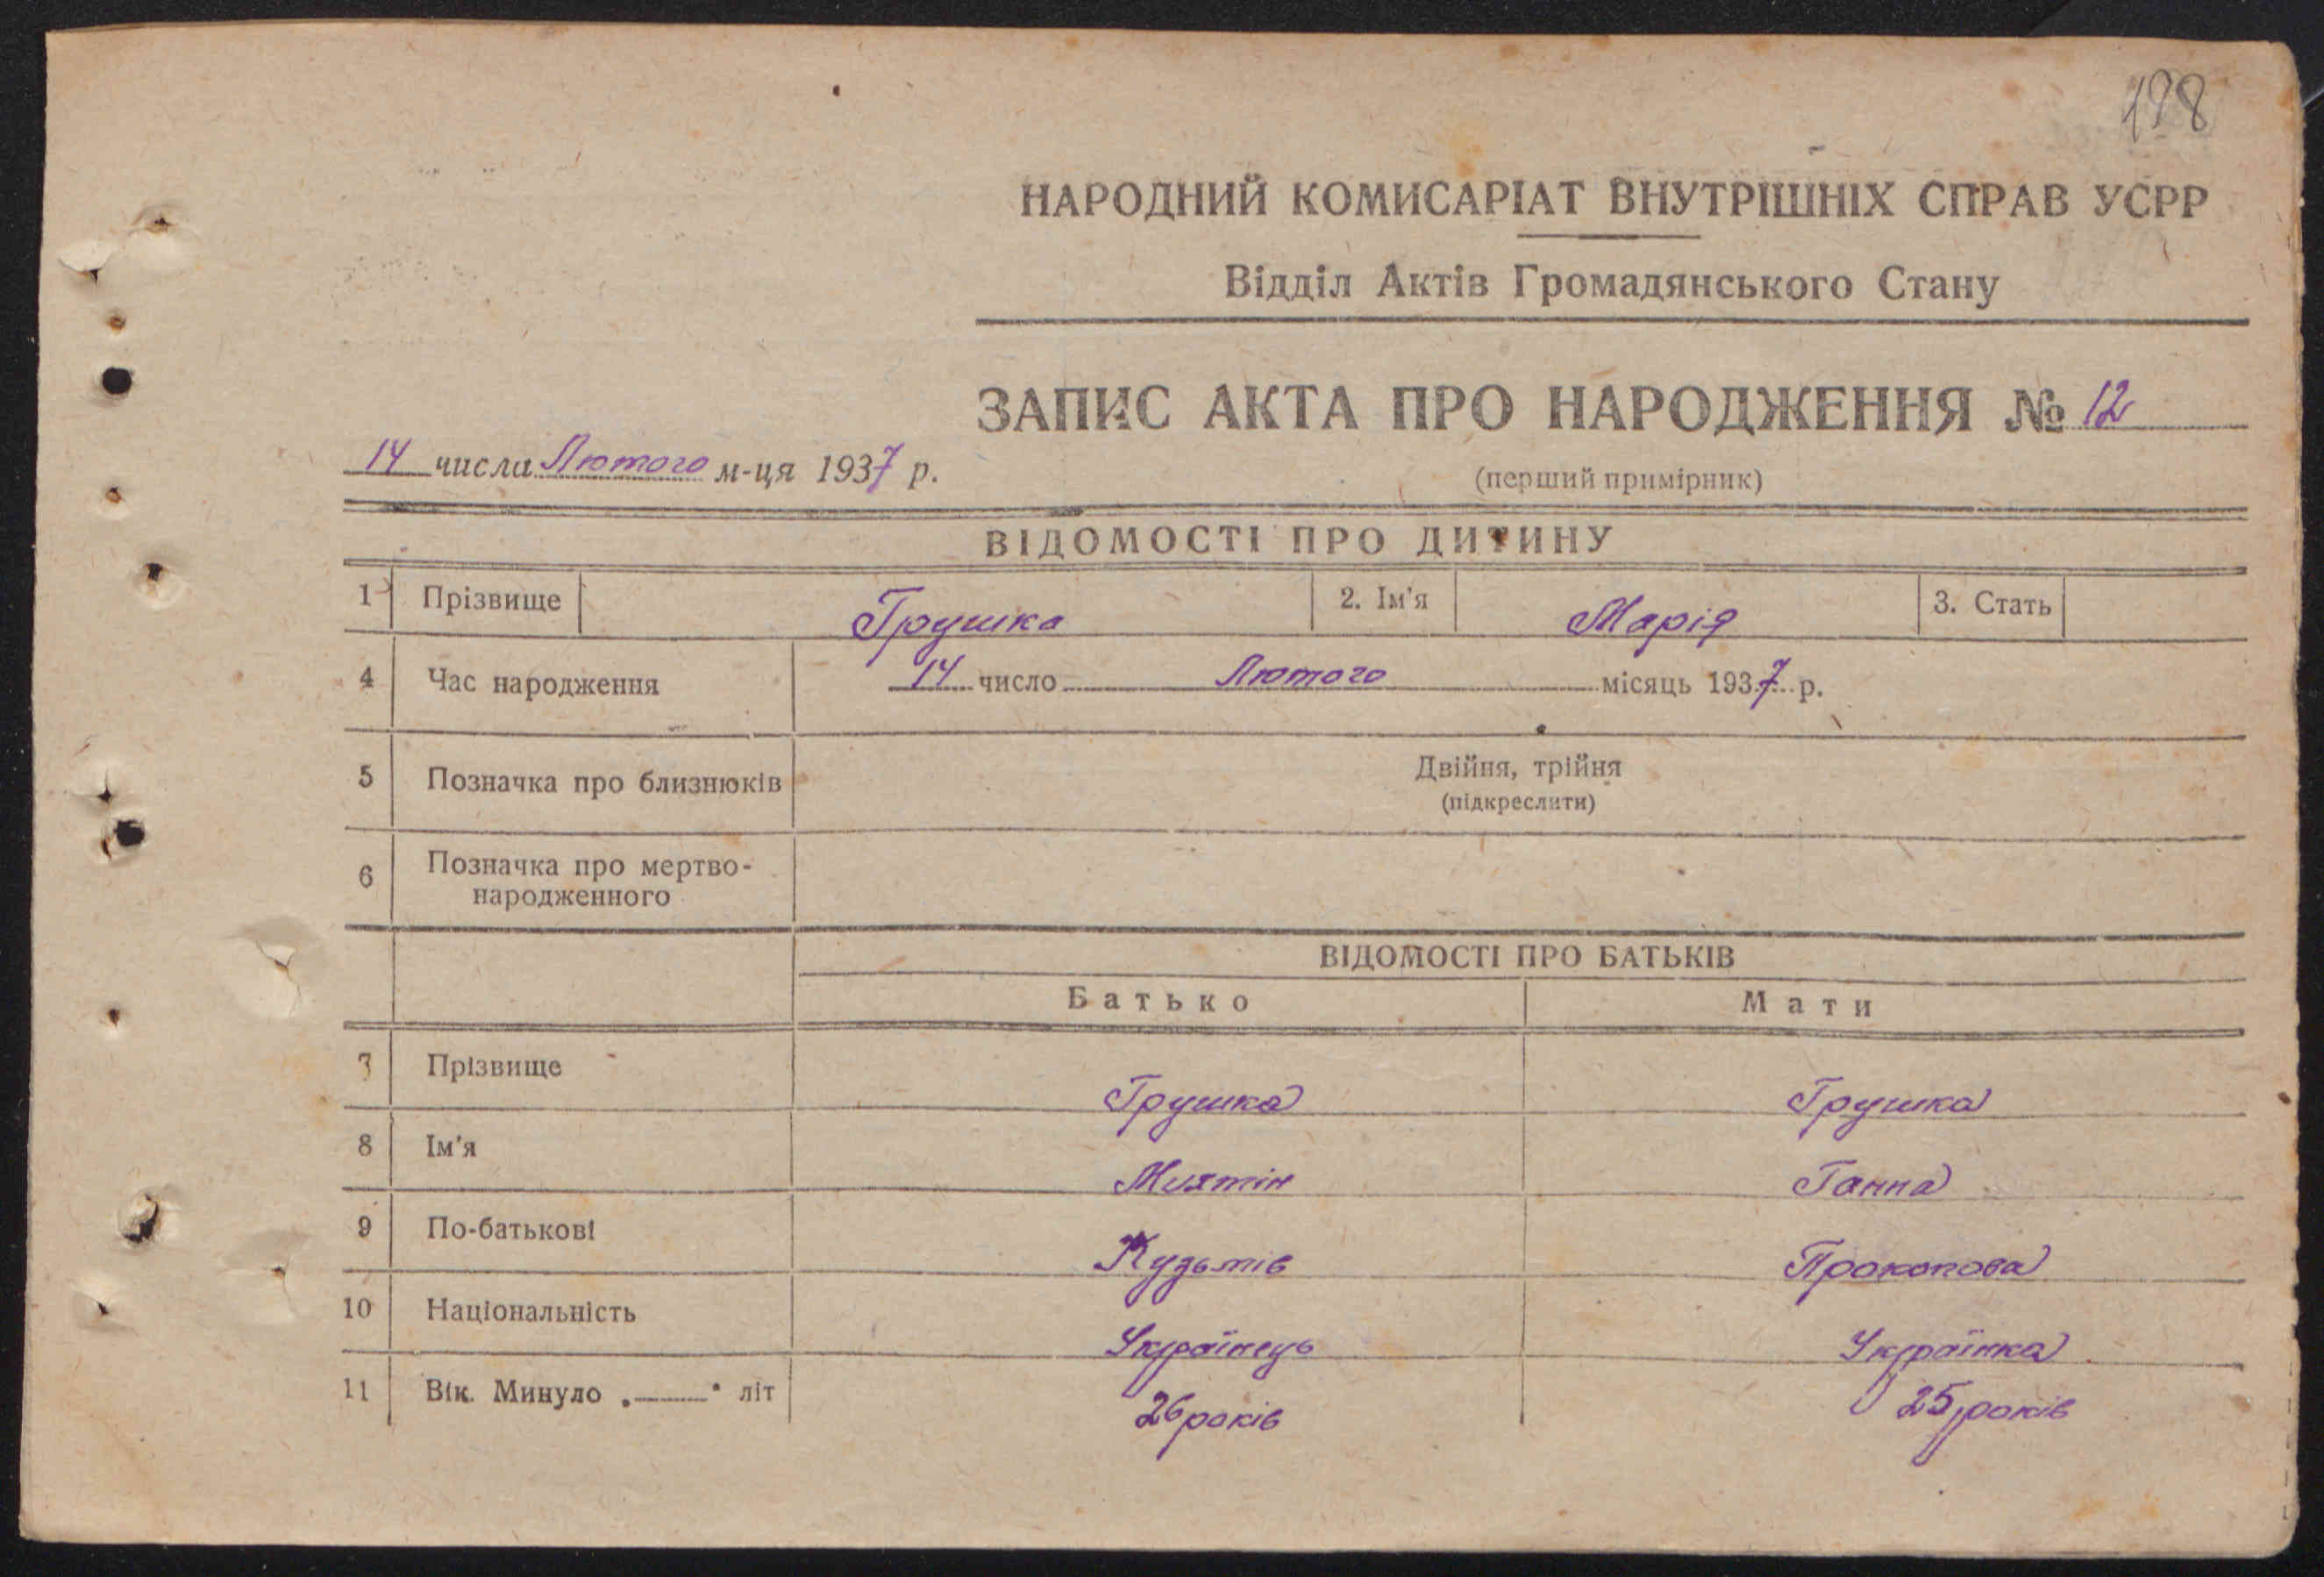 198
НАРОДНИЙ КОМИСАРІАТ ВНУТРІШНІХ СПРАВ УСРР
Відділ Актів Громадянського Стану
ЗАПИС АКТА ПРО НАРОДЖЕННЯ № 12
14 числа Лютого м-ця 1937 р.
(перший примірник)
ВІДОМОСТІ ПРО ДИТИНУ
1 Прізвище Грушка 2. Ім'я Марія 3. Стать
4 Час народження 14 число Лютого місяць 1937 р.
5 Позначка про близнюків Двійня, трійня
(підкреслити)
6 Позначка про мертво-
народженного
ВІДОМОСТІ ПРО БАТЬКІВ
Батько Мати
7 Прізвище Грушка Грушка
8 Ім'я Ганна
9 По-батькові Кузьмів Прокопова
10 Національність Українець Українка
11 Вік. Минуло „——“ літ 26 років 25 років